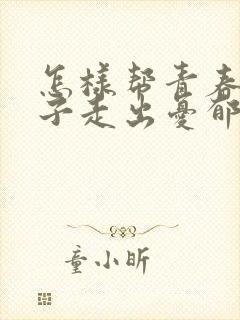 怎样帮青春
子走出憂郁
童小昕